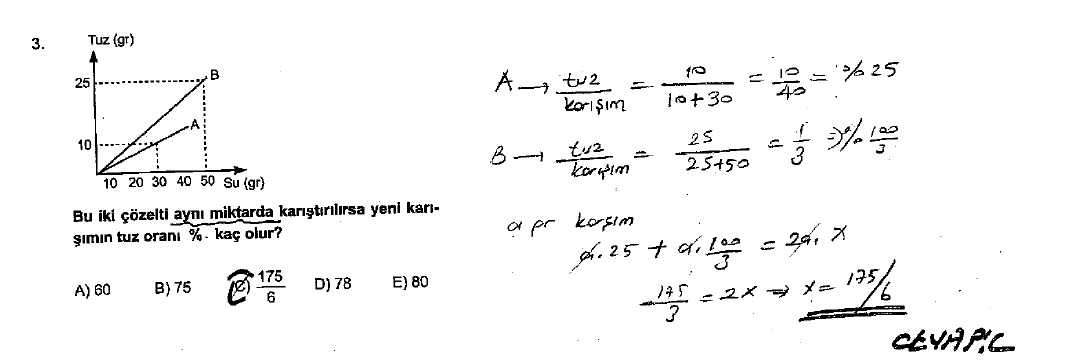 3.
Tuz (gr)
25
B
A
10
10 20 30 40 50 Su (gr)
Bu iki çözelti aynı miktarda karıştırılırsa yeni karı-
şımın tuz oranı % kaç olur?
A) 60 B) 75 C) 175/6 D) 78 E) 80
A → tuz/karışım = 10/10+30 = 10/40 = %25
B → tuz/karışım = 25/25+50 = 1/3 ⇒ % 100/3
a gr karışım
a.25 + a.100/3 = 2a.x
175/3 = 2x ⇒ x = 175/6
CEVAP: C